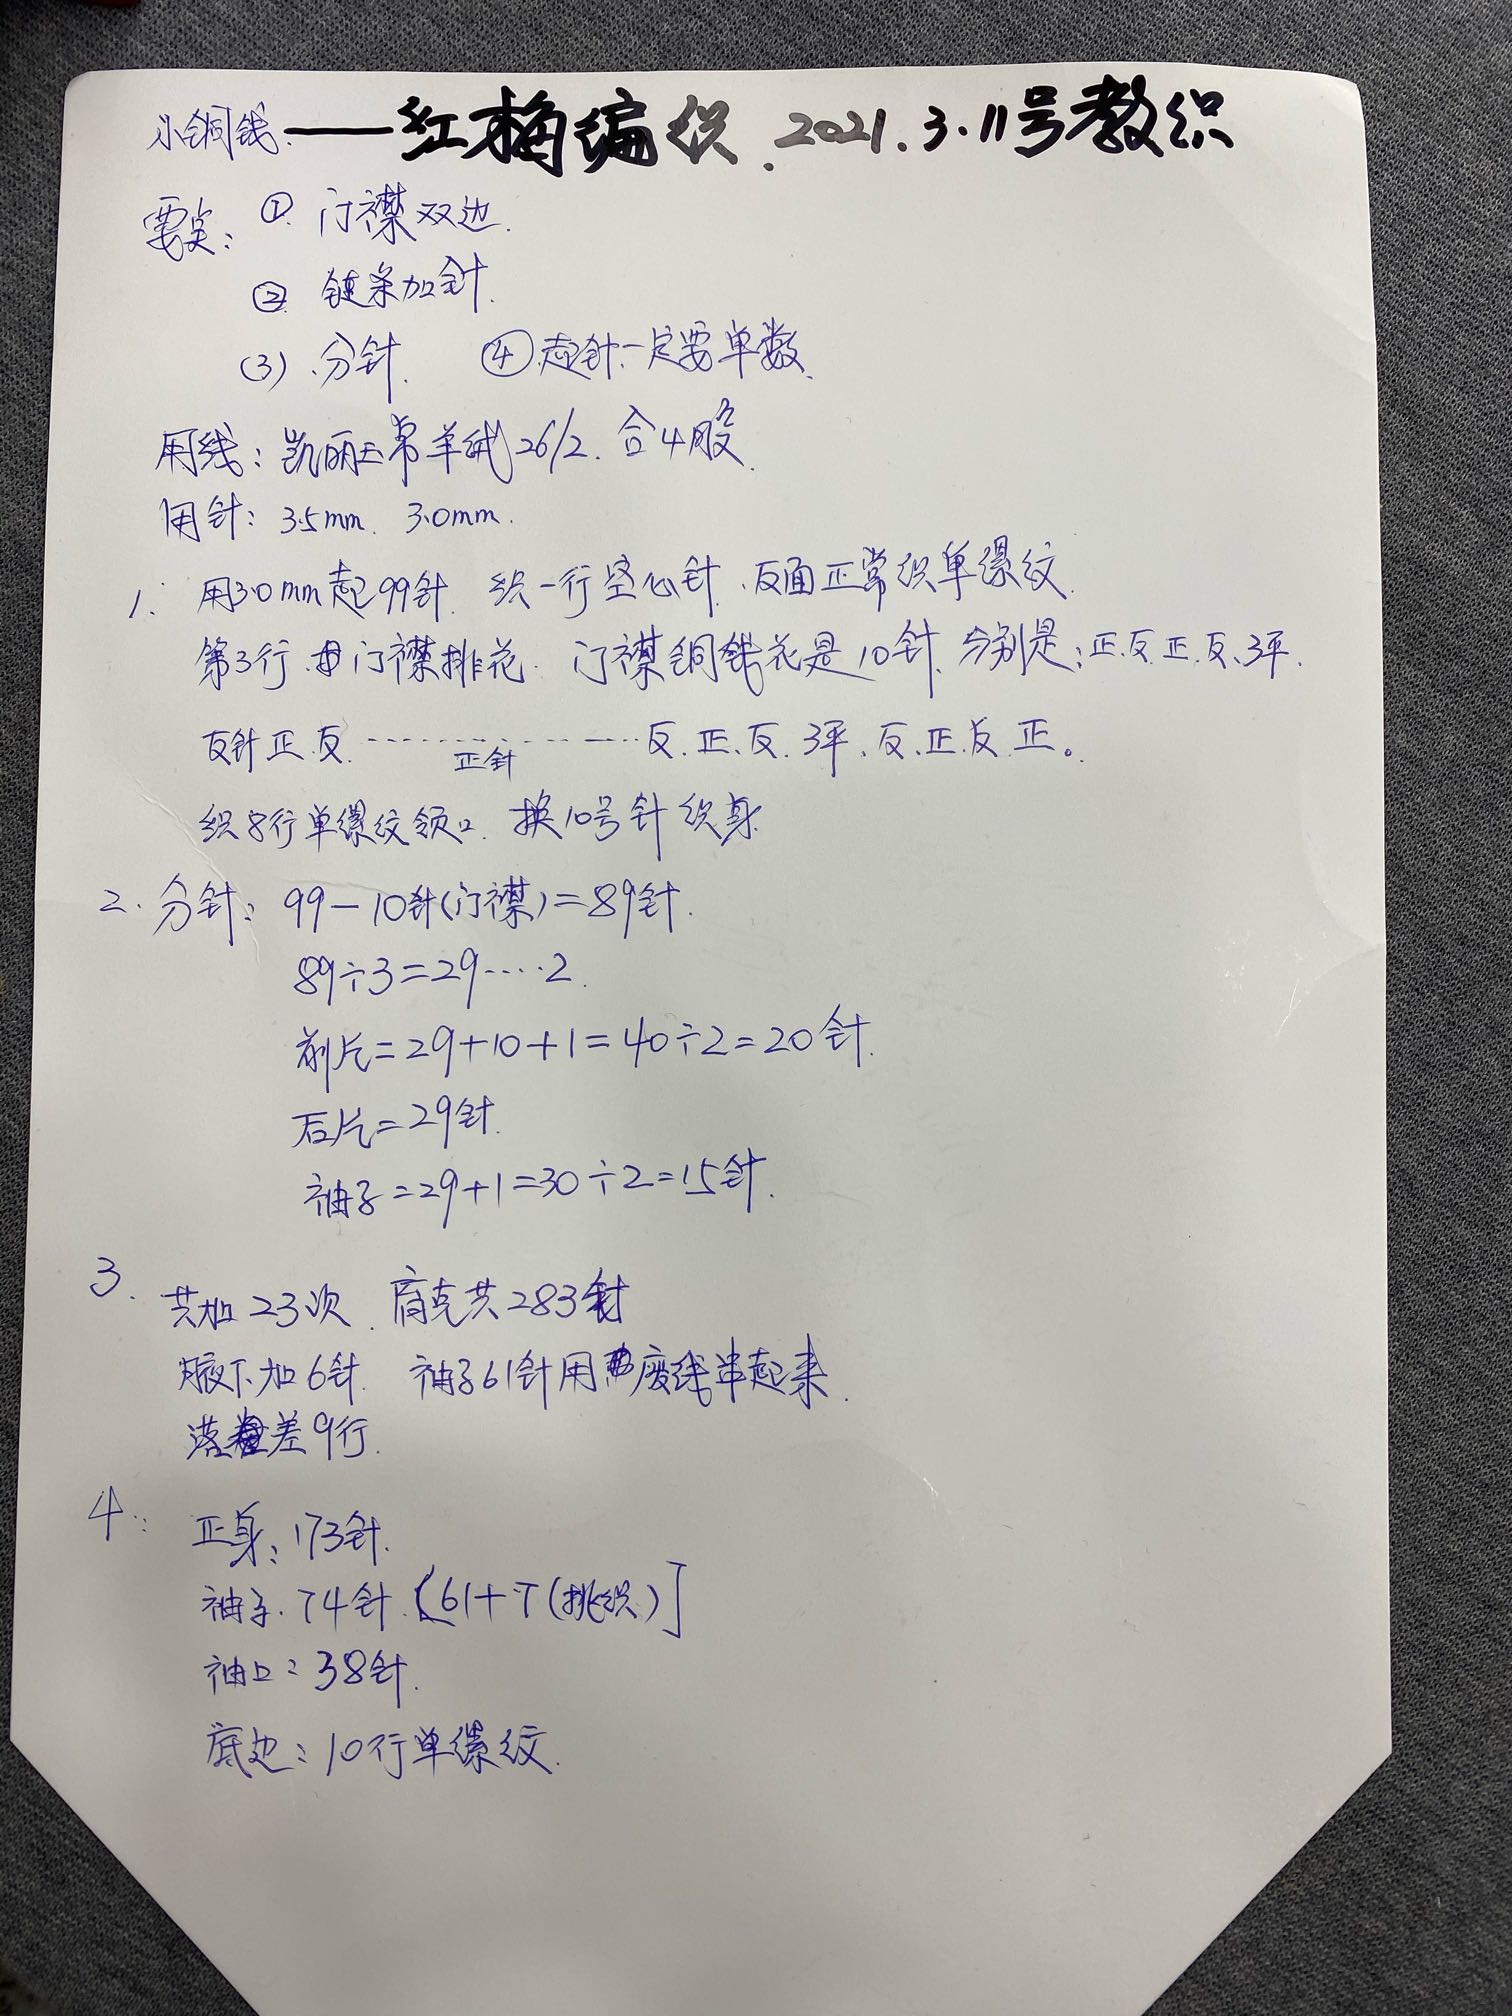 小铜钱.——红梅编织.2021.3.11号教织
要点: ① 门襟双边.
② 链条加针.
(3) 分针. ④起针一定要单数.
用线: 凯丽王常羊绒26/2. 合4股.
用针: 3.5mm. 3.0mm.
1. 用3.0mm起99针. 织一行空心针. 反面正常织单缧纹.
第3行 门襟排花. 门襟铜钱花是10针. 分别是:正.反.正.反.3平.
反针正.反.----------反.正.反.3平.反.正.反.正。
正针
织8行单缧纹领口. 换10号针织身
2. 分针: 99-10针(门襟)=89针.
89÷3=29····2.
前片=29+10+1=40÷2=20针.
后片=29针.
袖子=29+1=30÷2=15针.
3. 共加23次. 肩克共283针
腋下加6针. 袖子61针用废线串起来.
落差9行.
4: 正身: 173针.
袖子. 74针.[61+7(挑织)]
袖口: 38针.
底边: 10行单缧纹.